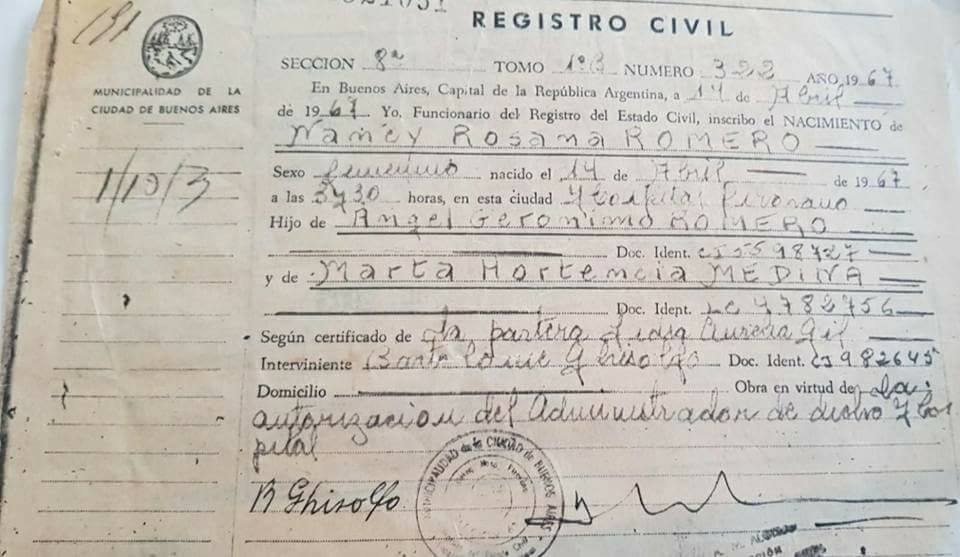 REGISTRO CIVIL
MUNICIPALIDAD DE LA
CIUDAD DE BUENOS AIRES
1/10/3
SECCION 8ª TOMO 1º B NUMERO 322 AÑO, 1967
En Buenos Aires, Capital de la República Argentina, a 17 de Abril
de 1967 Yo, Funcionario del Registro del Estado Civil, inscribo el NACIMIENTO de
Nancy Rosana ROMERO
Sexo femenino nacido el 14 de Abril de 1967
a las horas, en esta ciudad Hospital Pirovano
Hijo de Angel Geronimo ROMERO
Doc. Ident. 98727
y de Marta Hortencia MEDINA
Doc. Ident. LC 4782756
Según certificado de la partera Lidia Aurora Gil
Interviniente Ghisolfo Doc. Ident. CI 982645
Domicilio Obra en virtud de la
autorizacion del Administrador de dicho Hos
pital
B Ghisolfo
MUNICIPALIDAD de la CIUDAD de BUENOS AIRES